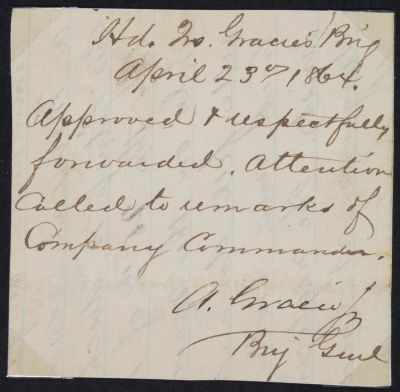 Hd. Qrs. Gracie's Brig
April 23rd, 1864.
Approved & respectfully
forwarded. Attention
Called to remarks of
Company Commander.
A. Gracie Jr
Brig Genl